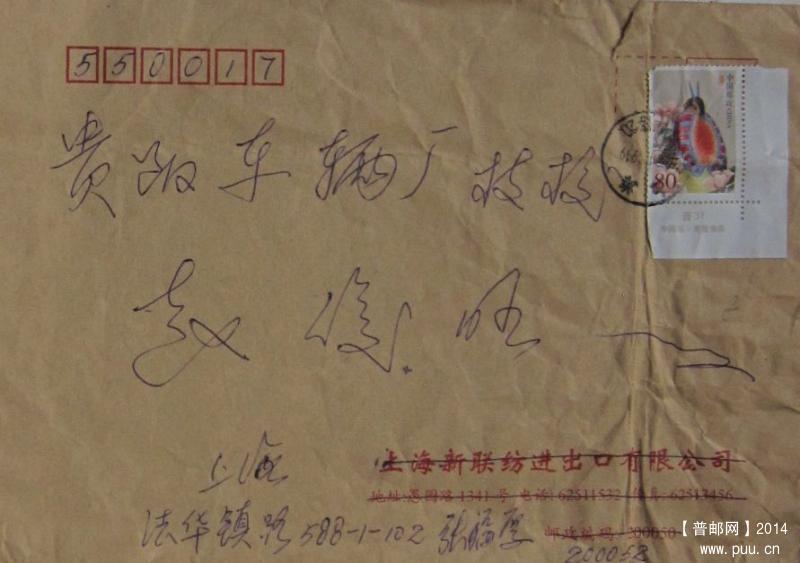 550017
中国邮政 CHINA
80
贵阳车辆厂技校
赵俊旺
上海新联纺进出口有限公司
地址:愚园路1341号 电话:62511532 传真:62513456
邮政编码:200050
上海
法华镇路588-1-102 张福厚
200052
【普邮网】2014
www.puu.cn